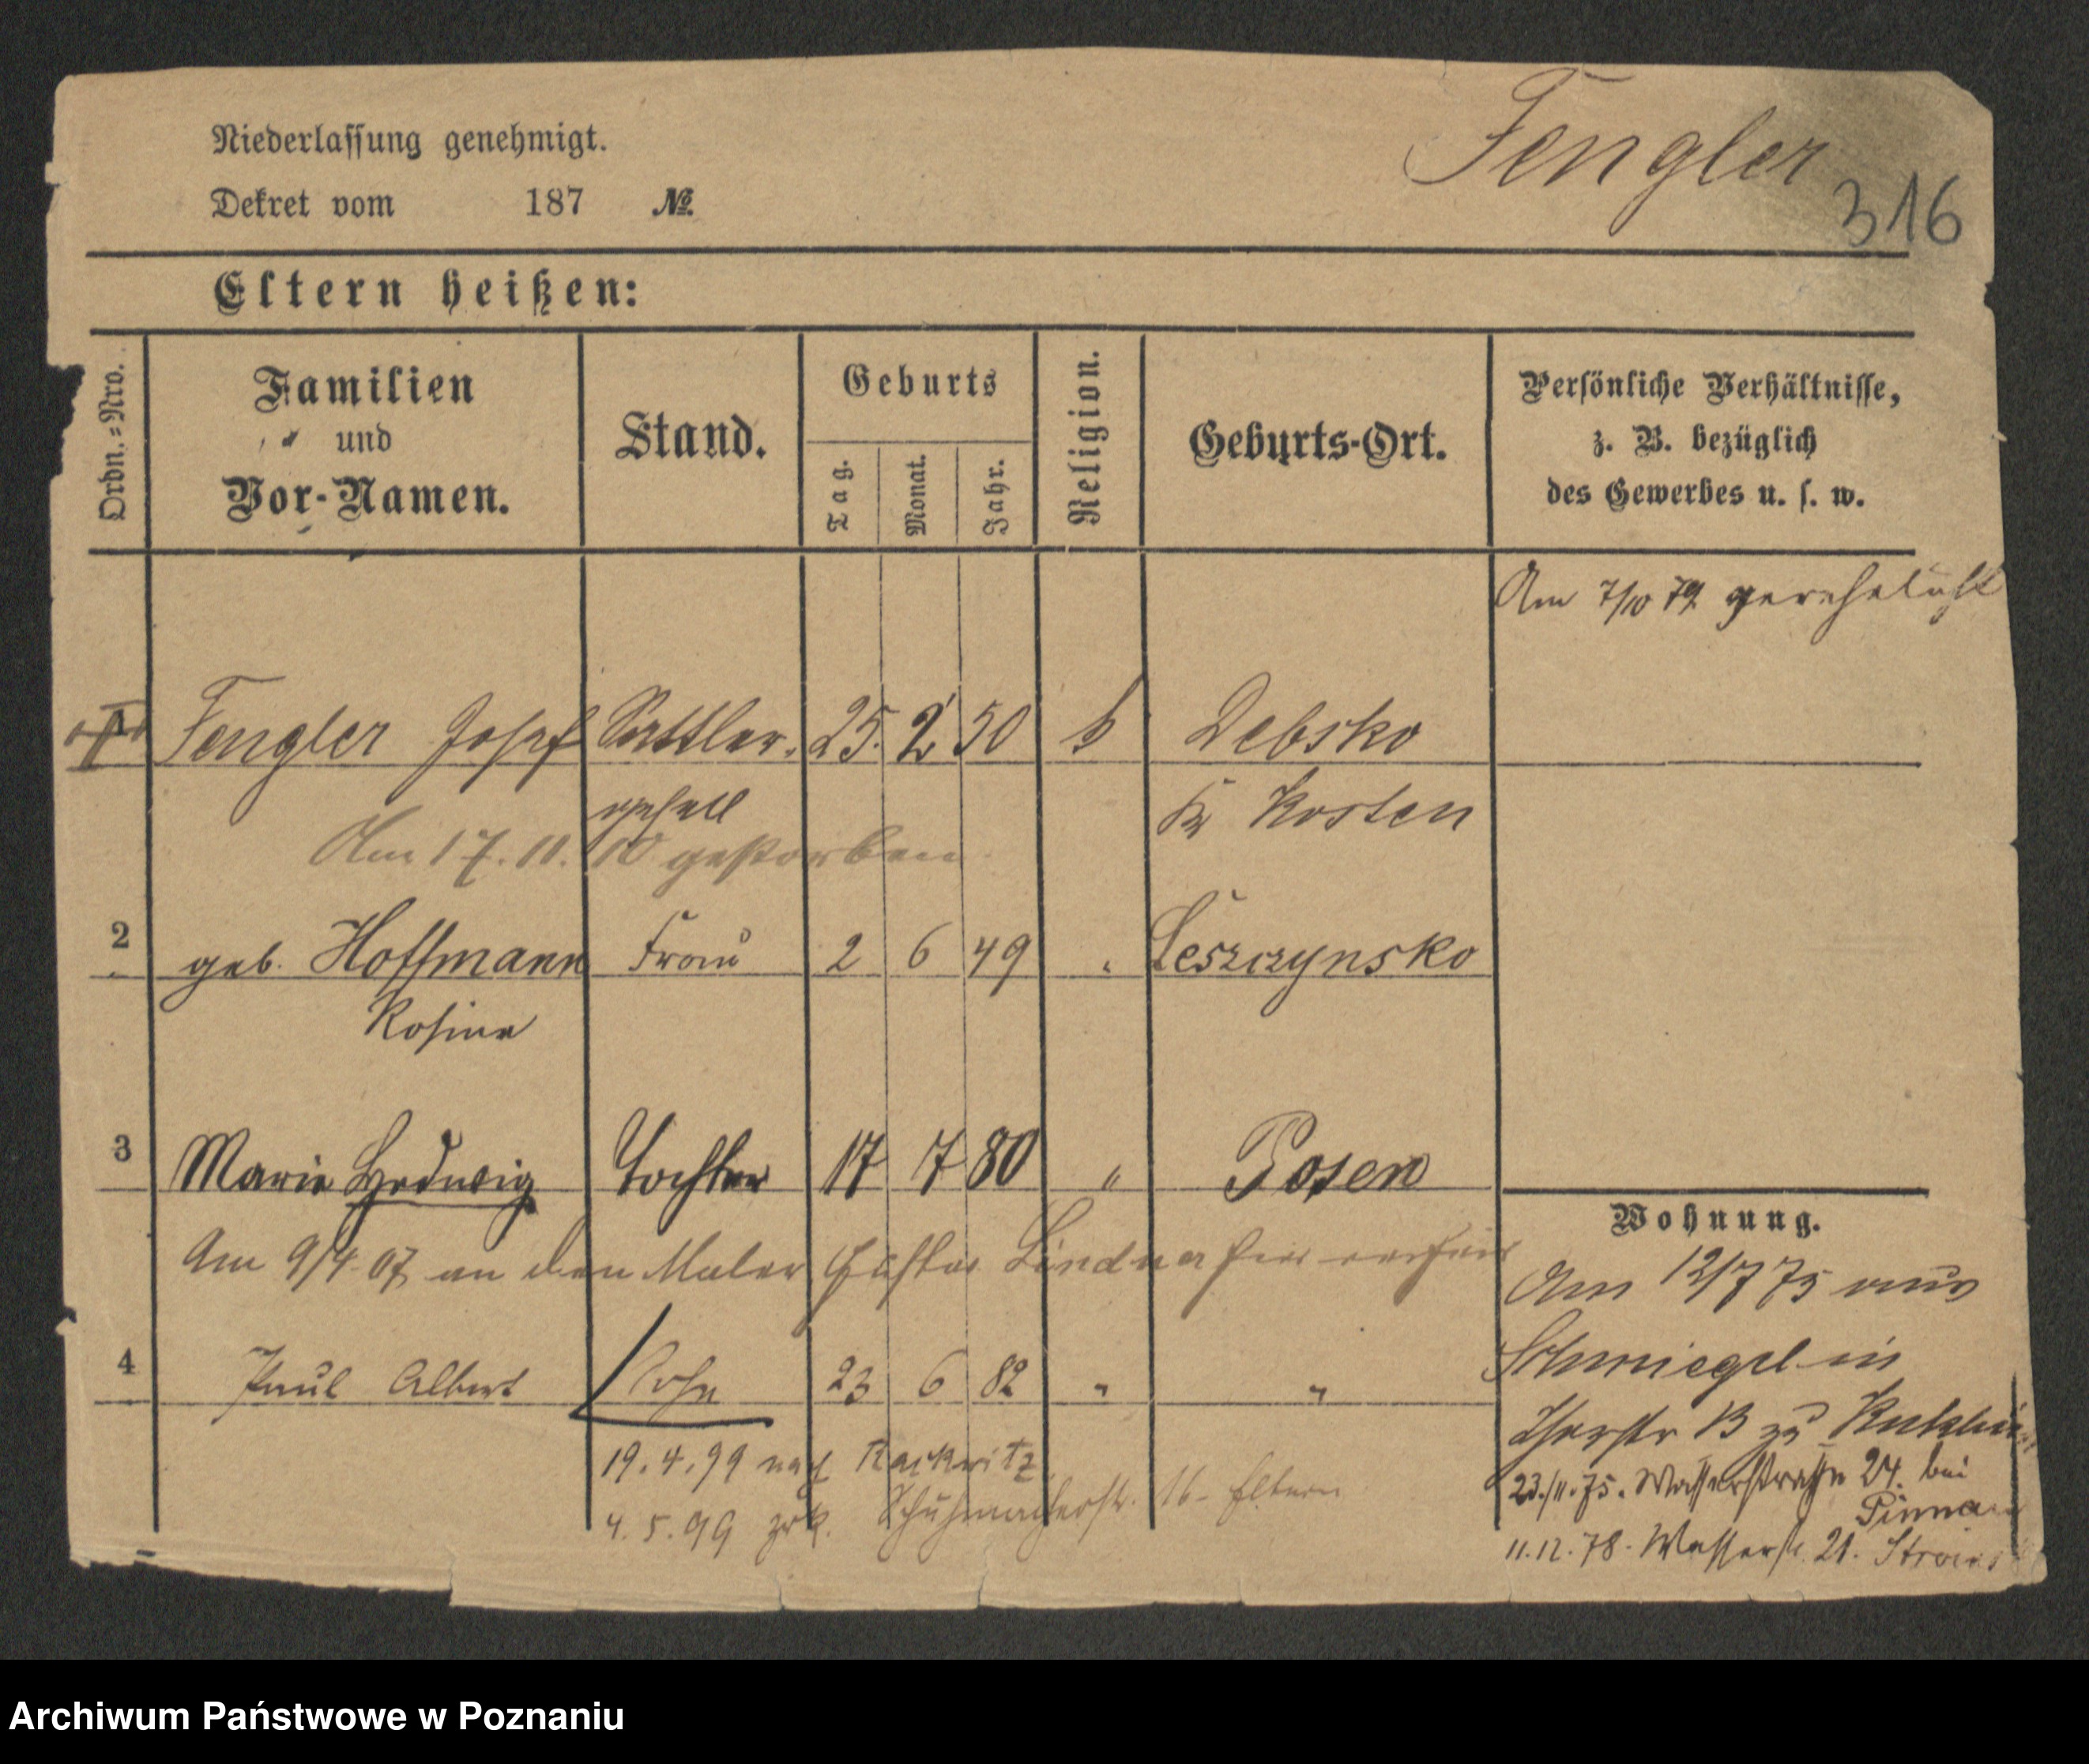 Niederlassung genehmigt.
Fengler
Dekret vom 187 №.
316
Eltern heißen:
Ordn.-Nro.
Familien und Vor-Namen.
Stand.
Geburts
Tag.
Monat.
Jahr.
Religion.
Geburts-Ort.
Persönliche Verhältnisse,
z. B. bezüglich
des Gewerbes u. s. w.
Am 7/10 79 verehelicht
1 Fengler Josef Sattler. 25. 2 50 k Debsko
gesell Kr Kosten
Am 17. 11. 10 gestorben
2 geb. Hoffmann Frau 2 6 49 " Leszczynsko
Rosina
3 Marie Hedwig Tochter 17 7 80 " Posen
Am 9/4 07 an den Maler Gustav
4 Paul Albert Sohn 23 6 82 " "
19. 4. 99 nach Rackwitz
4. 5. 99 zrk. Schuhmacherstr. 16 - Eltern
Wohnung.
Am 12/7 75 aus
Schmiegel in
13 zu
23./11. 75. Wasserstraße 24. bei
11. 12. 78. Wasserstr. 21.
Archiwum Państwowe w Poznaniu